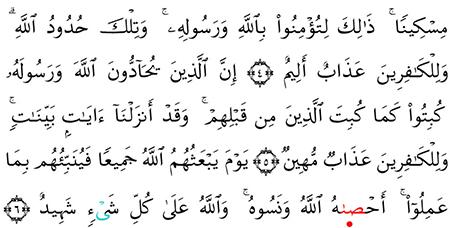 مِسْكِينًا ۚ ذَٰلِكَ لِتُؤْمِنُوا۟ بِٱللَّهِ وَرَسُولِهِۦ ۚ وَتِلْكَ حُدُودُ ٱللَّهِ ۗ
وَلِلْكَٰفِرِينَ عَذَابٌ أَلِيمٌ ﴿٤﴾ إِنَّ ٱلَّذِينَ يُحَآدُّونَ ٱللَّهَ وَرَسُولَهُۥ
كُبِتُوا۟ كَمَا كُبِتَ ٱلَّذِينَ مِن قَبْلِهِمْ ۚ وَقَدْ أَنزَلْنَآ ءَايَٰتٍۭ بَيِّنَٰتٍ ۚ
وَلِلْكَٰفِرِينَ عَذَابٌ مُّهِينٌ ﴿٥﴾ يَوْمَ يَبْعَثُهُمُ ٱللَّهُ جَمِيعًا فَيُنَبِّئُهُم بِمَا
عَمِلُوٓا۟ ۚ أَحْصَىٰهُ ٱللَّهُ وَنَسُوهُ ۚ وَٱللَّهُ عَلَىٰ كُلِّ شَىْءٍ شَهِيدٌ ﴿٦﴾